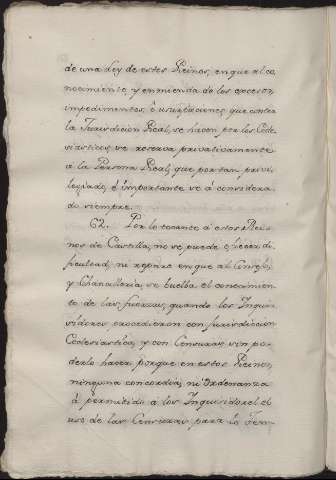 de una Ley de estos Reinos, en que al co-
nocimiento, y enmienda de los excesos,
impedimentos, ó usurpaciones que contra
la Jurisdicion Real, se hacen por los Ecle-
siasticos se reserva privativamente
a la Persona Real, que por tan privi-
legiado, é importante se á considera-
do siempre.
62. Por lo tocante á estos Rei-
nos de Castilla, no se puede ofrecer di-
ficultad, ni reparo en que al Consejo,
y Chancilleria, se buelba el conocimien-
to de las fuerzas, quando los Inqui-
sidores procedieron con Jurisdiccion
Eclesiastica, y con Censuras, sin po-
derlo hacer, porque en estos Reinos,
ninguna concordia, ni Ordenanza
á permitido á los Inquisidores el
uso de las Censuras para lo Tem-